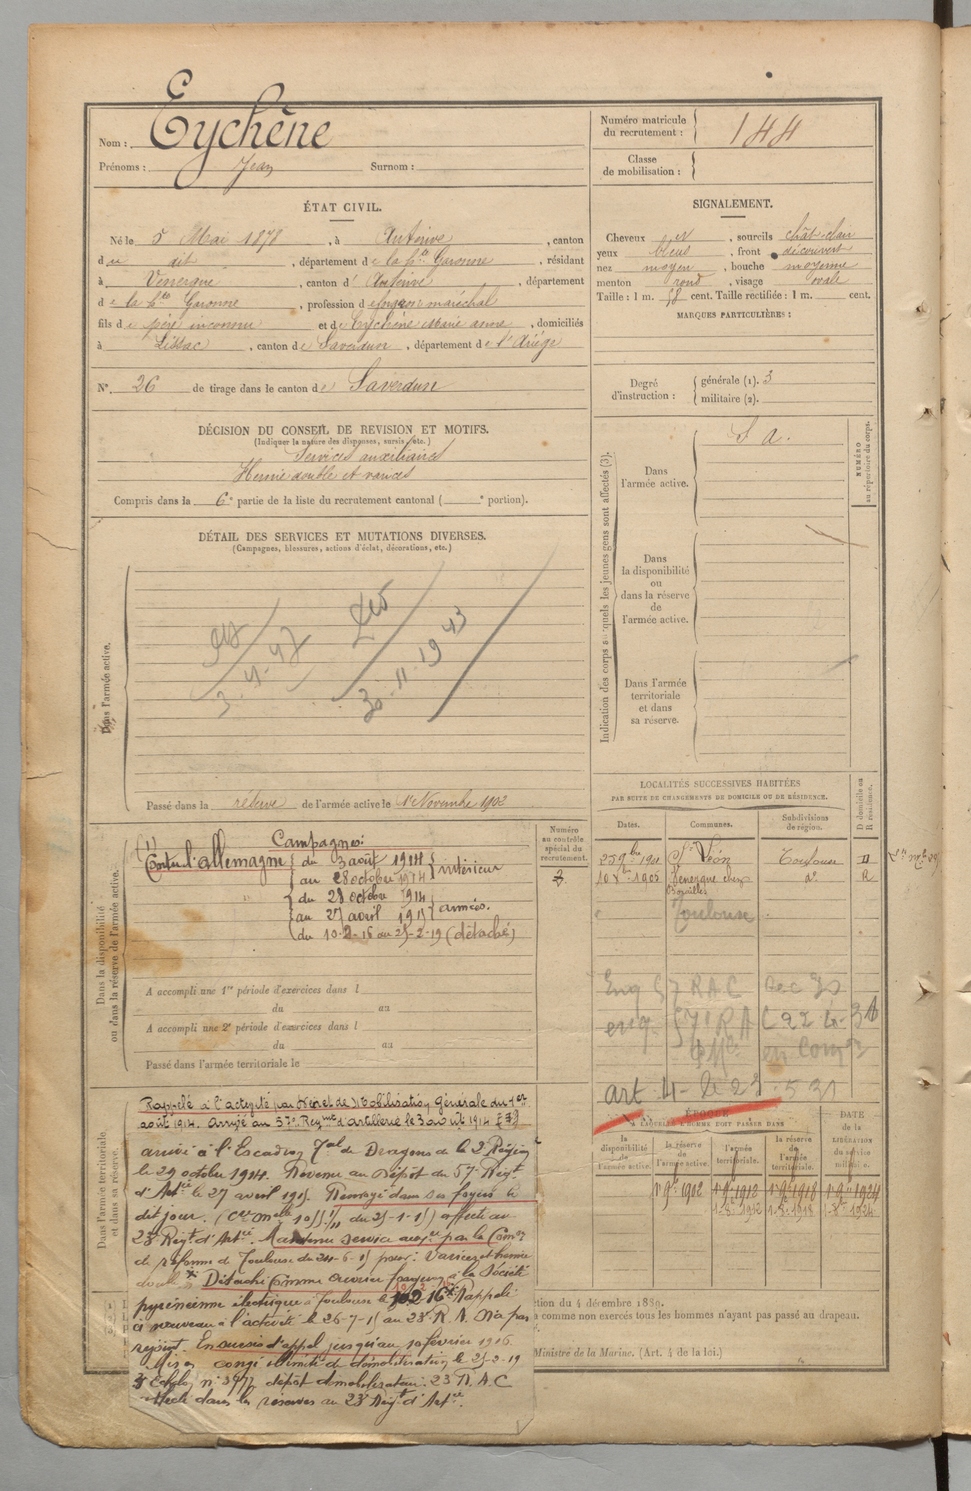 Nom : Eychêne
Prénoms : Jean Surnom :
Numéro matricule
du recrutement : 144
Classe
de mobilisation :
ÉTAT CIVIL.
Né le 5 Mai 1878, à Auterive, canton
du dit, département de la Hte Garonne, résidant
à Venerque, canton d'Auterive, département
de la Hte Garonne, profession de forgeron maréchal
fils de père inconnu et de Eychêne Marie Anne, domiciliés
à Lissac, canton de Saverdun, département de l'Ariège
N° 26 de tirage dans le canton de Saverdun
SIGNALEMENT.
Cheveux et, sourcils chât-clair
yeux bleus, front découvert
nez moyen, bouche moyenne
menton rond, visage ovale
Taille : 1 m. 58 cent. Taille rectifiée : 1 m. cent.
MARQUES PARTICULIÈRES :
Degré
d'instruction :
générale (1). 3
militaire (2).
DÉCISION DU CONSEIL DE REVISION ET MOTIFS.
(Indiquer la nature des dispenses, sursis, etc.)
Services auxiliaires
Hernie double et varices
Compris dans la 6e partie de la liste du recrutement cantonal ( e portion).
DÉTAIL DES SERVICES ET MUTATIONS DIVERSES.
(Campagnes, blessures, actions d'éclat, décorations, etc.)
Dans l'armée active.
3.4.47
30.11.1943
Passé dans la réserve de l'armée active le 1er Novembre 1902
Indication des corps auxquels les jeunes gens sont affectés (3).
NUMÉRO
au répertoire du corps.
Dans
l'armée active.
S A.
Dans
la disponibilité
ou
dans la réserve
de
l'armée active.
Dans l'armée
territoriale
et dans
sa réserve.
Dans la disponibilité
ou dans la réserve de l'armée active.
(1) Campagnes:
Contre l'allemagne
du 3 août 1914
au 28 octobre 1914 intérieur
du 28 octobre 1914
au 27 avril 1915 armées.
du 10-2-16 au 25-2-19 (détaché)
Numéro
au contrôle
spécial du
recrutement.
A accompli une 1re période d'exercices dans l
du au
A accompli une 2e période d'exercices dans l
du au
Passé dans l'armée territoriale le
LOCALITÉS SUCCESSIVES HABITÉES
PAR SUITE DE CHANGEMENTS DE DOMICILE OU DE RÉSIDENCE.
Dates. Communes. Subdivisions
de région. D domicile ou
R résidence.
25 9bre 1901 St Léon Toulouse D
10 Xbre 1905 Venerque chez d° R
Toulouse
57 RAC
art 4 - le 21.5.31
ÉPOQUE
À LAQUELLE L'HOMME DOIT PASSER DANS
DATE
de la
LIBÉRATION
du service
militaire.
la
disponibilité
de
l'armée active.
la réserve
de
l'armée active.
l'armée
territoriale.
la réserve
de
l'armée
territoriale.
1r 9bre 1902 1r 9bre 1912 1r 9bre 1918 1r 9bre 1924
Dans l'armée territoriale.
et dans sa réserve.
Rappelé à l'activité par Décret de Mobilisation Générale du 1er
août 1914. Arrivé au 57e Regimt d'artillerie le 3 août 1914
arrivé à l'Escadron Tal de Dragons de la 2e Région
le 29 octobre 1914. Revenu au Dépôt du 57e Régt
d'Artie le 27 avril 1915. Renvoyé dans ses foyers le
dit jour. affecté au
23e Régt d'Artie. Maintenu service auxre par la Comon
de réforme de Toulouse du 24-6-15 pour: Varices et hernie
double Détaché comme ouvrier forgeron à la Société
pyrénéenne électrique à Toulouse le Rappelé
à nouveau à l'activité le 26-7-15 au 23e R.A. N'a pas
rejoint. En sursis d'appel jusqu'au 10 février 1916.
Mis en congé illimité de démobilisation le 25-2-19
3e Echelon n° 3977 dépôt démobilisateur: 23 R.A.C
affecté dans les réserves au 23e Régt d'Artie.
ction du 4 décembre 1889.
a comme non exercés tous les hommes n'ayant pas passé au drapeau.
Ministre de la Marine. (Art. 4 de la loi.)